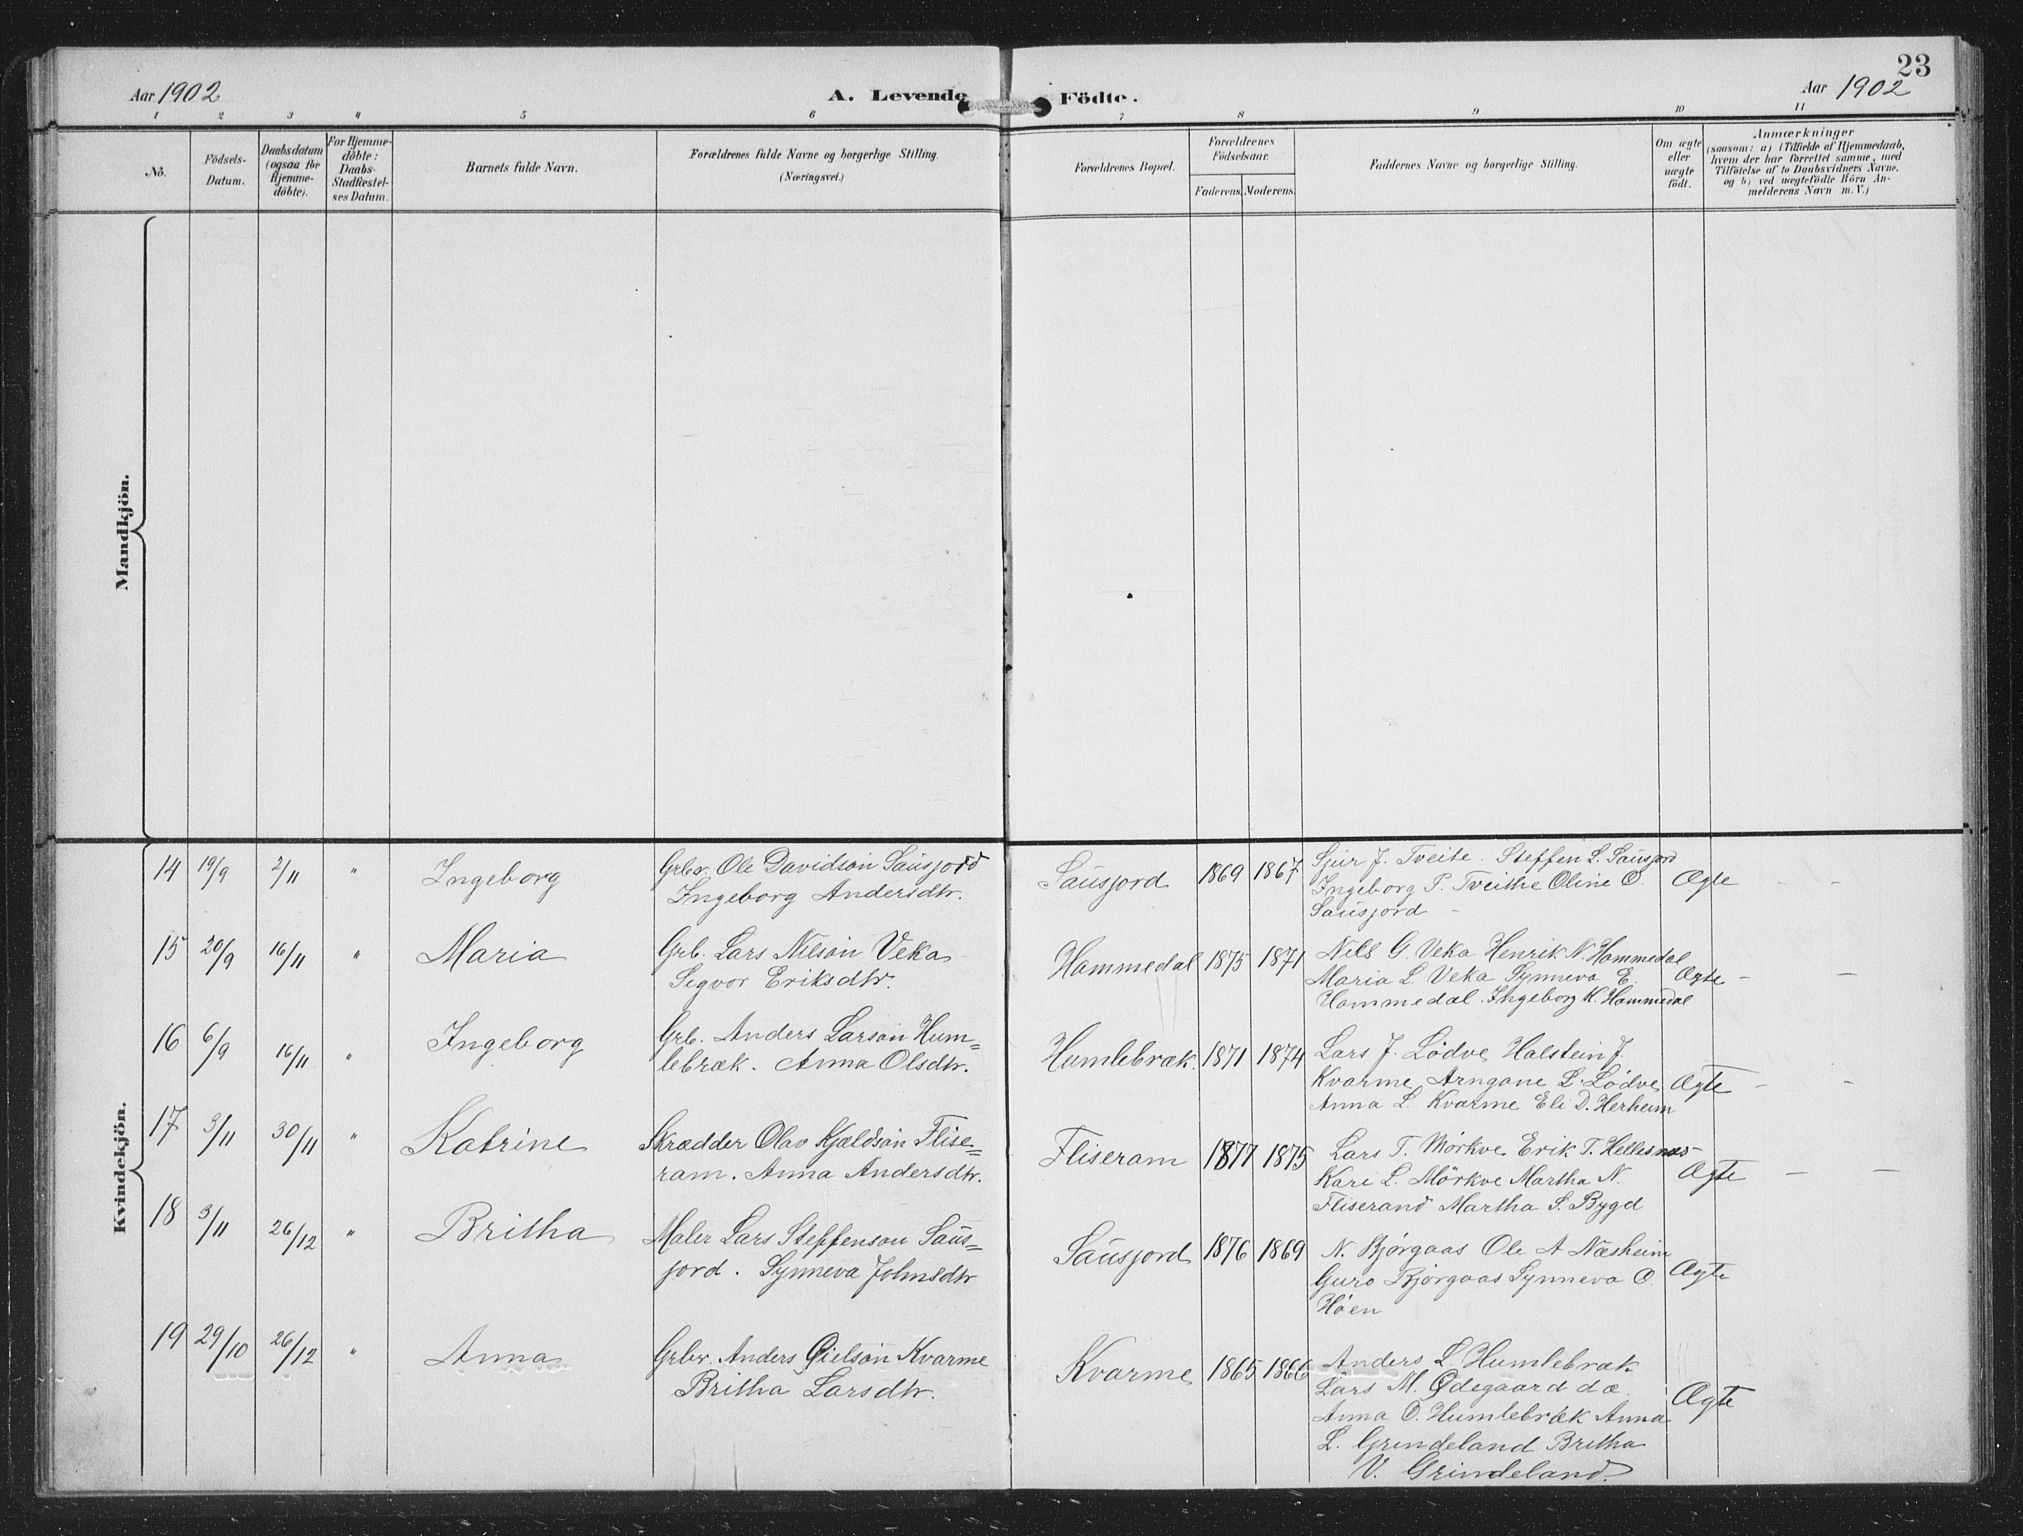 23
Aar 1902
A. Levende Födte.
Aar 1902
1 2 3 4 5 6 7 8 9 10 11
Nô. Födsels-Datum. Daabsdatum (ogsaa for Hjemmedöbte). For Hjemmedöbte: Daabs-Stadfæstelses Datum. Barnets fulde Navn. Forældrenes fulde Navne og borgerlige Stilling. (Næringsvei.) Forældrenes Bopæl. Forældrenes Födselsaar. Faderens. Moderens. Faddernes Navne og borgerlige Stilling. Om ægte eller uægte födt.
Anmærkninger
(saasom: a) i Tilfælde af Hjemmedaab,
hvem der har forrettet samme, med
Tilföielse af to Daabsvidners Navne.
og b) ved uægtefödte Börn An-
melderens Navn m. V.)
Mandkjön.
Kvindekjön.
14 19/9 2/11 " Ingeborg
Grbr. Ole Davidson Sausjord
Ingeborg Andersdtr.
Sausjord 1869 1867
Sjur J. Tveite. Steffen L. Sausjord
Ingeborg P. Tveithe Oline O.
Sausjord –
Ægte – –
15 20/9 16/11 " Maria
Grb. Lars Nilson Veka
Segvor Eriksdtr.
Hammedal 1875 1871
Nils G. Veka Henrik N. Hammedal
Maria L. Veka Synneva E.
Hammedal. Ingeborg K. Hammedal
Ægte – –
16 6/9 16/11 " Ingeborg
Grb. Anders Larson Hum=
lebræk. Anna Olsdtr.
Humlebræk. 1871 1874
Lars J. Lødve Halstein J.
Kvarme Arngane L. Lødve
Anna L. Kvarme Eli D. Herheim
Ægte – –
17 3/11 30/11 " Katrine
Skrædder Olav Kjældson Flise=
ram. Anna Andersdtr.
Fliseram 1877 1875
Lars T. Mørkve Erik T. Hellesnæs
Kari L. Mørkve Martha N.
Fliserand Martha S. Bygd
Ægte – –
18 3/11 26/12 " Britha
Maler Lars Steffenson Saus=
jord. Synneva Johnsdtr
Sausjord 1876 1869
N. Bjørgaas Ole A Næsheim
Guro Bjørgaas Synneva O.
Høen
Ægte
19 29/10 26/12 " Anna
Grbr. Anders Øielson Kvarme
Britha Larsdtr.
Kvarme 1865 1866
Anders L. Humlebræk
Lars M. Ødegaard dæ.
Anna O. Humlebræk Anna
L. Grindeland Britha
V. Grindeland.
Ægte